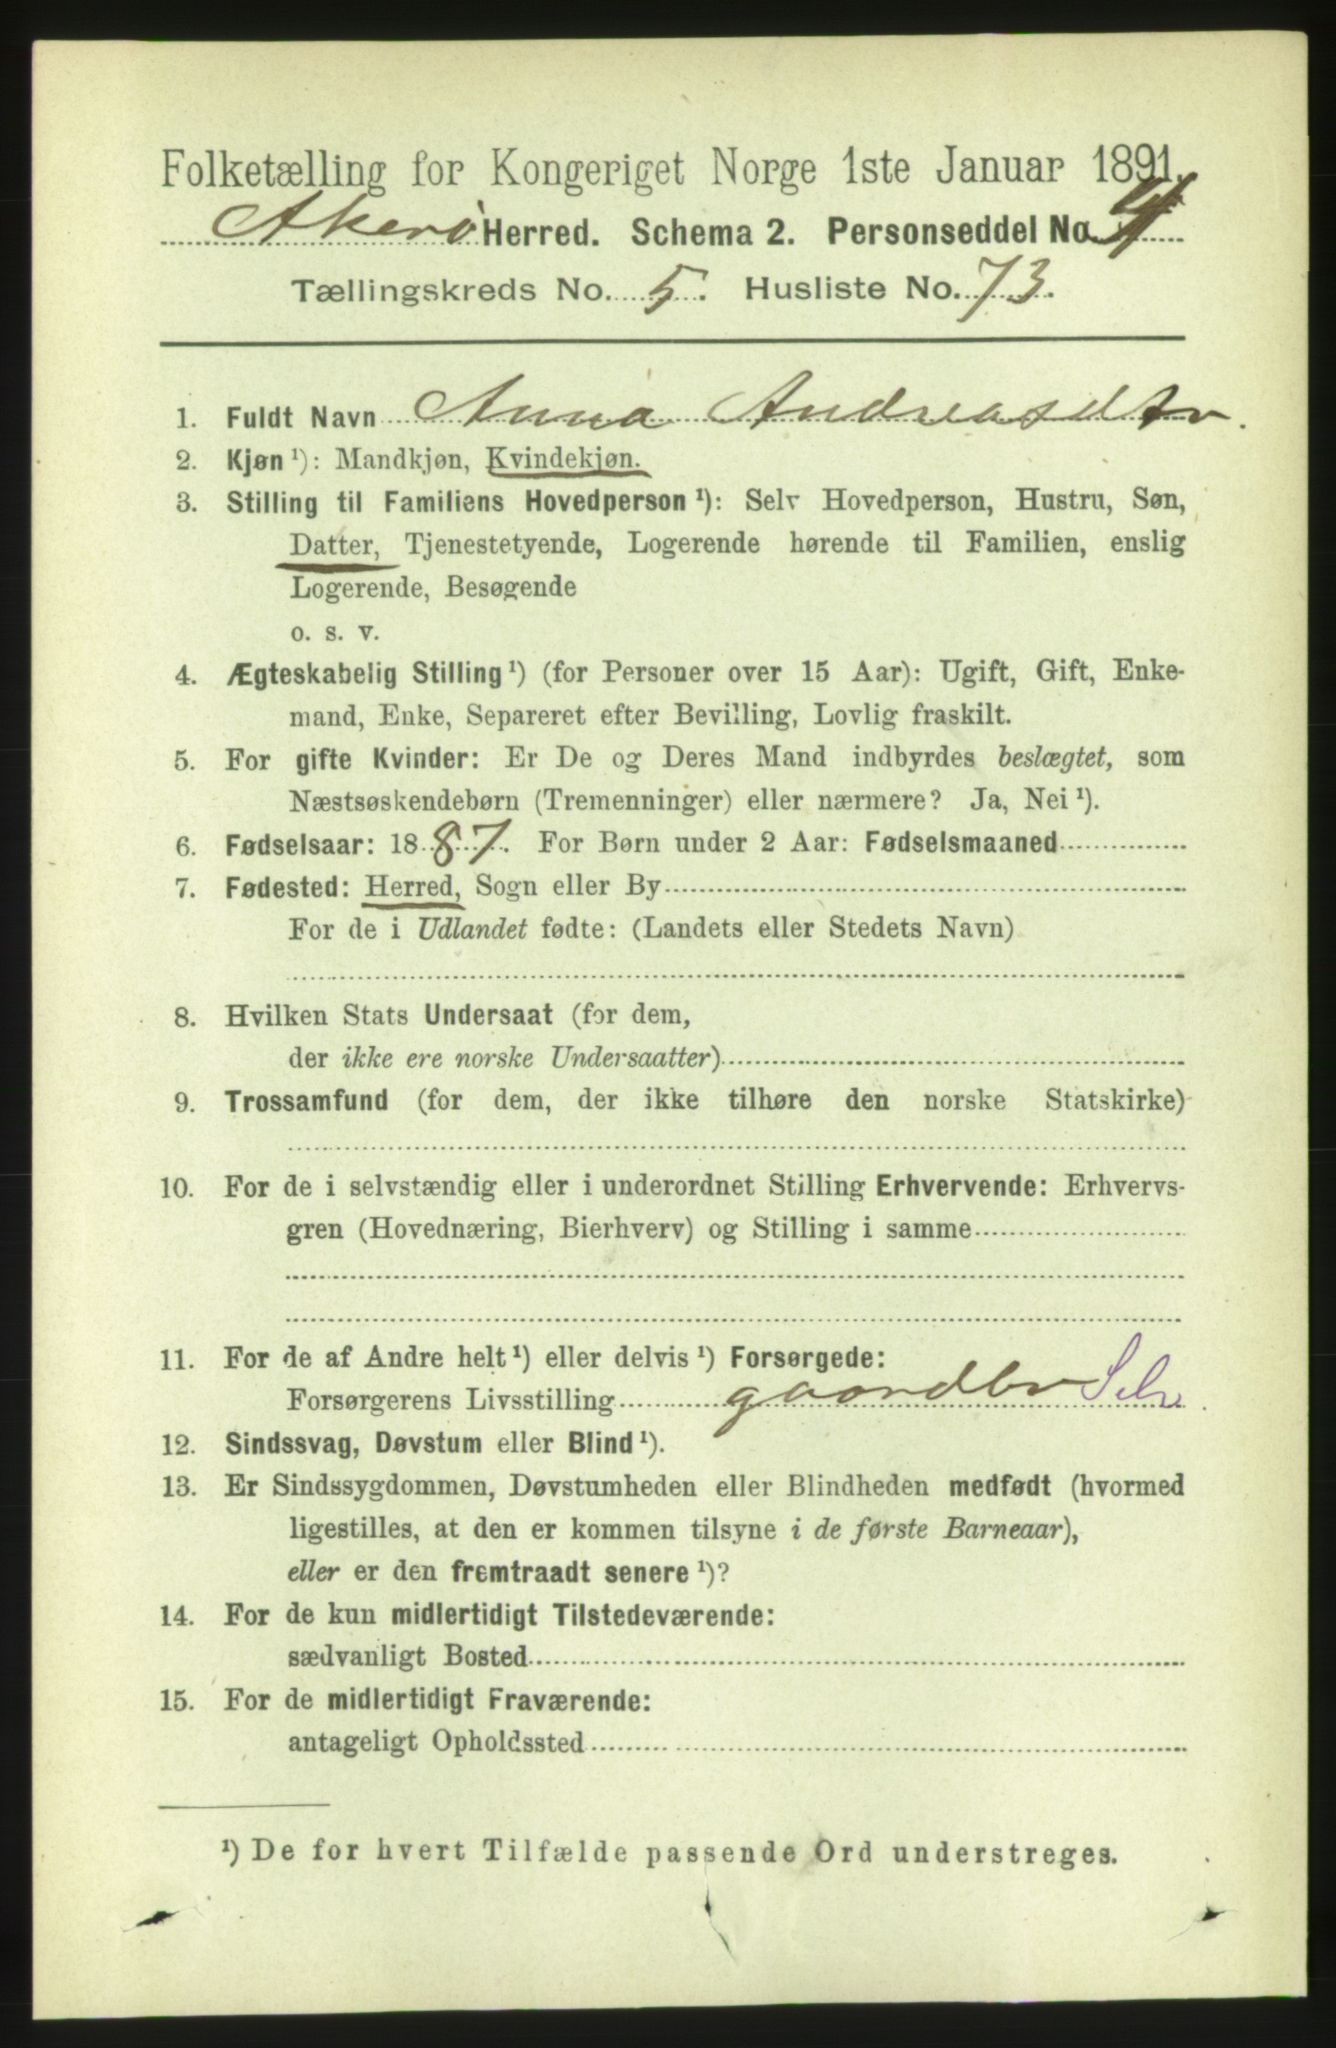 Folketælling for Kongeriget Norge 1ste Januar 1891.
Akerø Herred. Schema 2. Personseddel No. 4
Tællingskreds No. 5. Husliste No. 73.
1. Fuldt Navn Anna Andreasdtr.
2. Kjøn ¹): Mandkjøn, Kvindekjøn.
3. Stilling til Familiens Hovedperson ¹): Selv Hovedperson, Hustru, Søn,
Datter, Tjenestetyende, Logerende hørende til Familien, enslig
Logerende, Besøgende
o. s. v.
4. Ægteskabelig Stilling ¹) (for Personer over 15 Aar): Ugift, Gift, Enke-
mand, Enke, Separeret efter Bevilling, Lovlig fraskilt.
5. For gifte Kvinder: Er De og Deres Mand indbyrdes beslægtet, som
Næstsøskendebørn (Tremenninger) eller nærmere? Ja, Nei ¹).
6. Fødselsaar: 1887. For Børn under 2 Aar: Fødselsmaaned
7. Fødested: Herred, Sogn eller By
For de i Udlandet fødte: (Landets eller Stedets Navn)
8. Hvilken Stats Undersaat (for dem,
der ikke ere norske Undersaatter)
9. Trossamfund (for dem, der ikke tilhøre den norske Statskirke)
10. For de i selvstændig eller i underordnet Stilling Erhvervende: Erhvervs-
gren (Hovednæring, Bierhverv) og Stilling i samme
11. For de af Andre helt ¹) eller delvis ¹) Forsørgede:
Forsørgerens Livsstilling gaardbr
12. Sindssvag, Døvstum eller Blind ¹).
13. Er Sindssygdommen, Døvstumheden eller Blindheden medfødt (hvormed
ligestilles, at den er kommen tilsyne i de første Barneaar),
eller er den fremtraadt senere ¹)?
14. For de kun midlertidigt Tilstedeværende:
sædvanligt Bosted
15. For de midlertidigt Fraværende:
antageligt Opholdssted
¹) De for hvert Tilfælde passende Ord understreges.